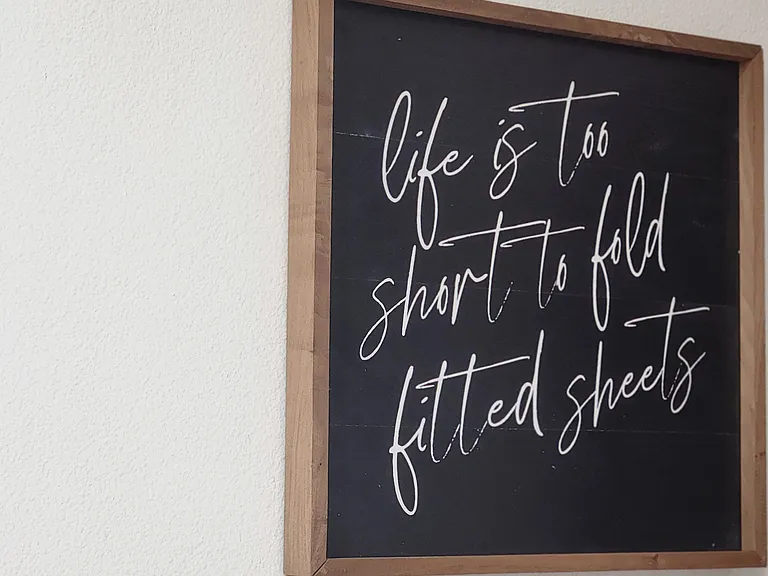 life is too
short to fold
fitted sheets